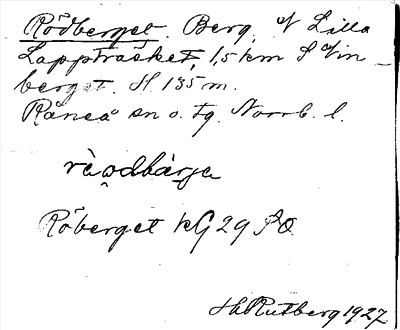 Rödberget. Berg. V Lilla
Lappträsket, 1,5 km S Vin-
berget. H. 135 m.
Råneå sn o. tg. Norrb. l.
Röberget kG 29 PO
H. Rutberg 1927